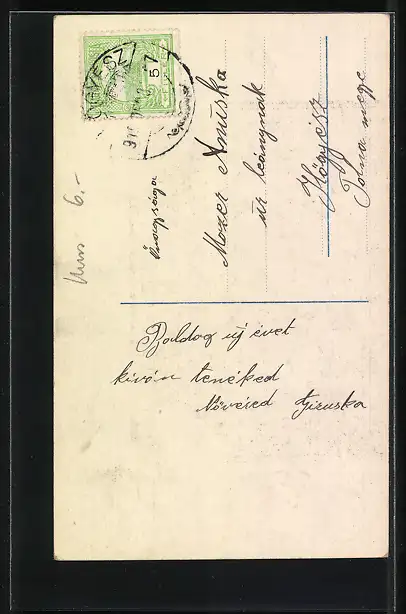 HŐGYÉSZ
5
Hum 6.-
Őnagysága
Mozer Annuska
úr leánynak
Hőgyész
Tolna megye
Boldog új évet
kíván tenéked
Növéred Giruska